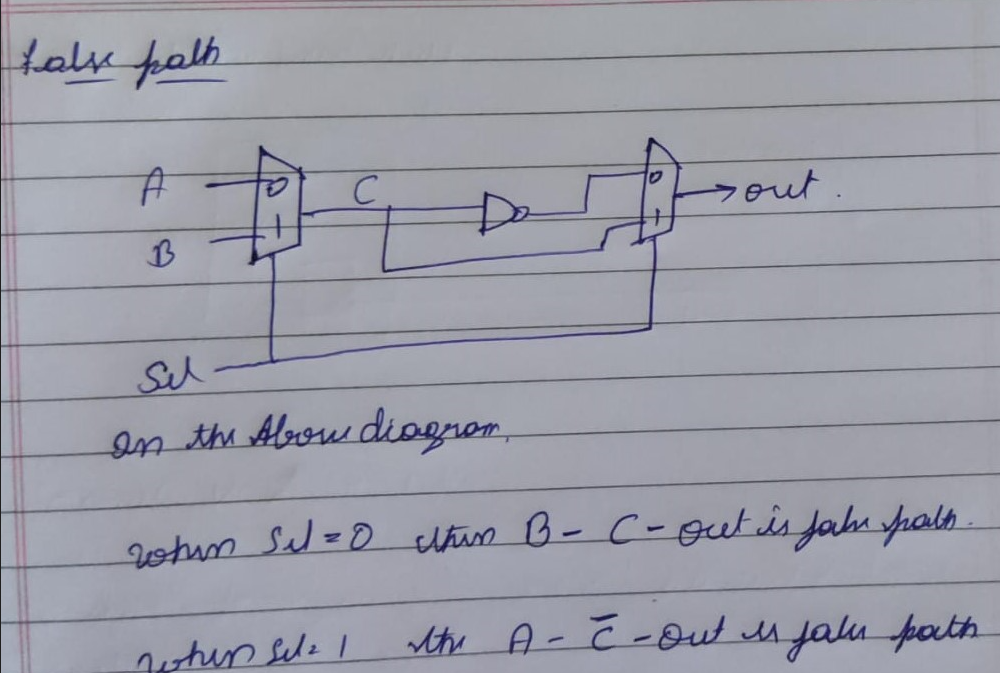 false path
A
0
C
0
out.
B
1
1
Sel
In the Above diagram,
when Sel = 0 then B - C - out is false path.
when sel = 1 the A - C̅ - out is false path